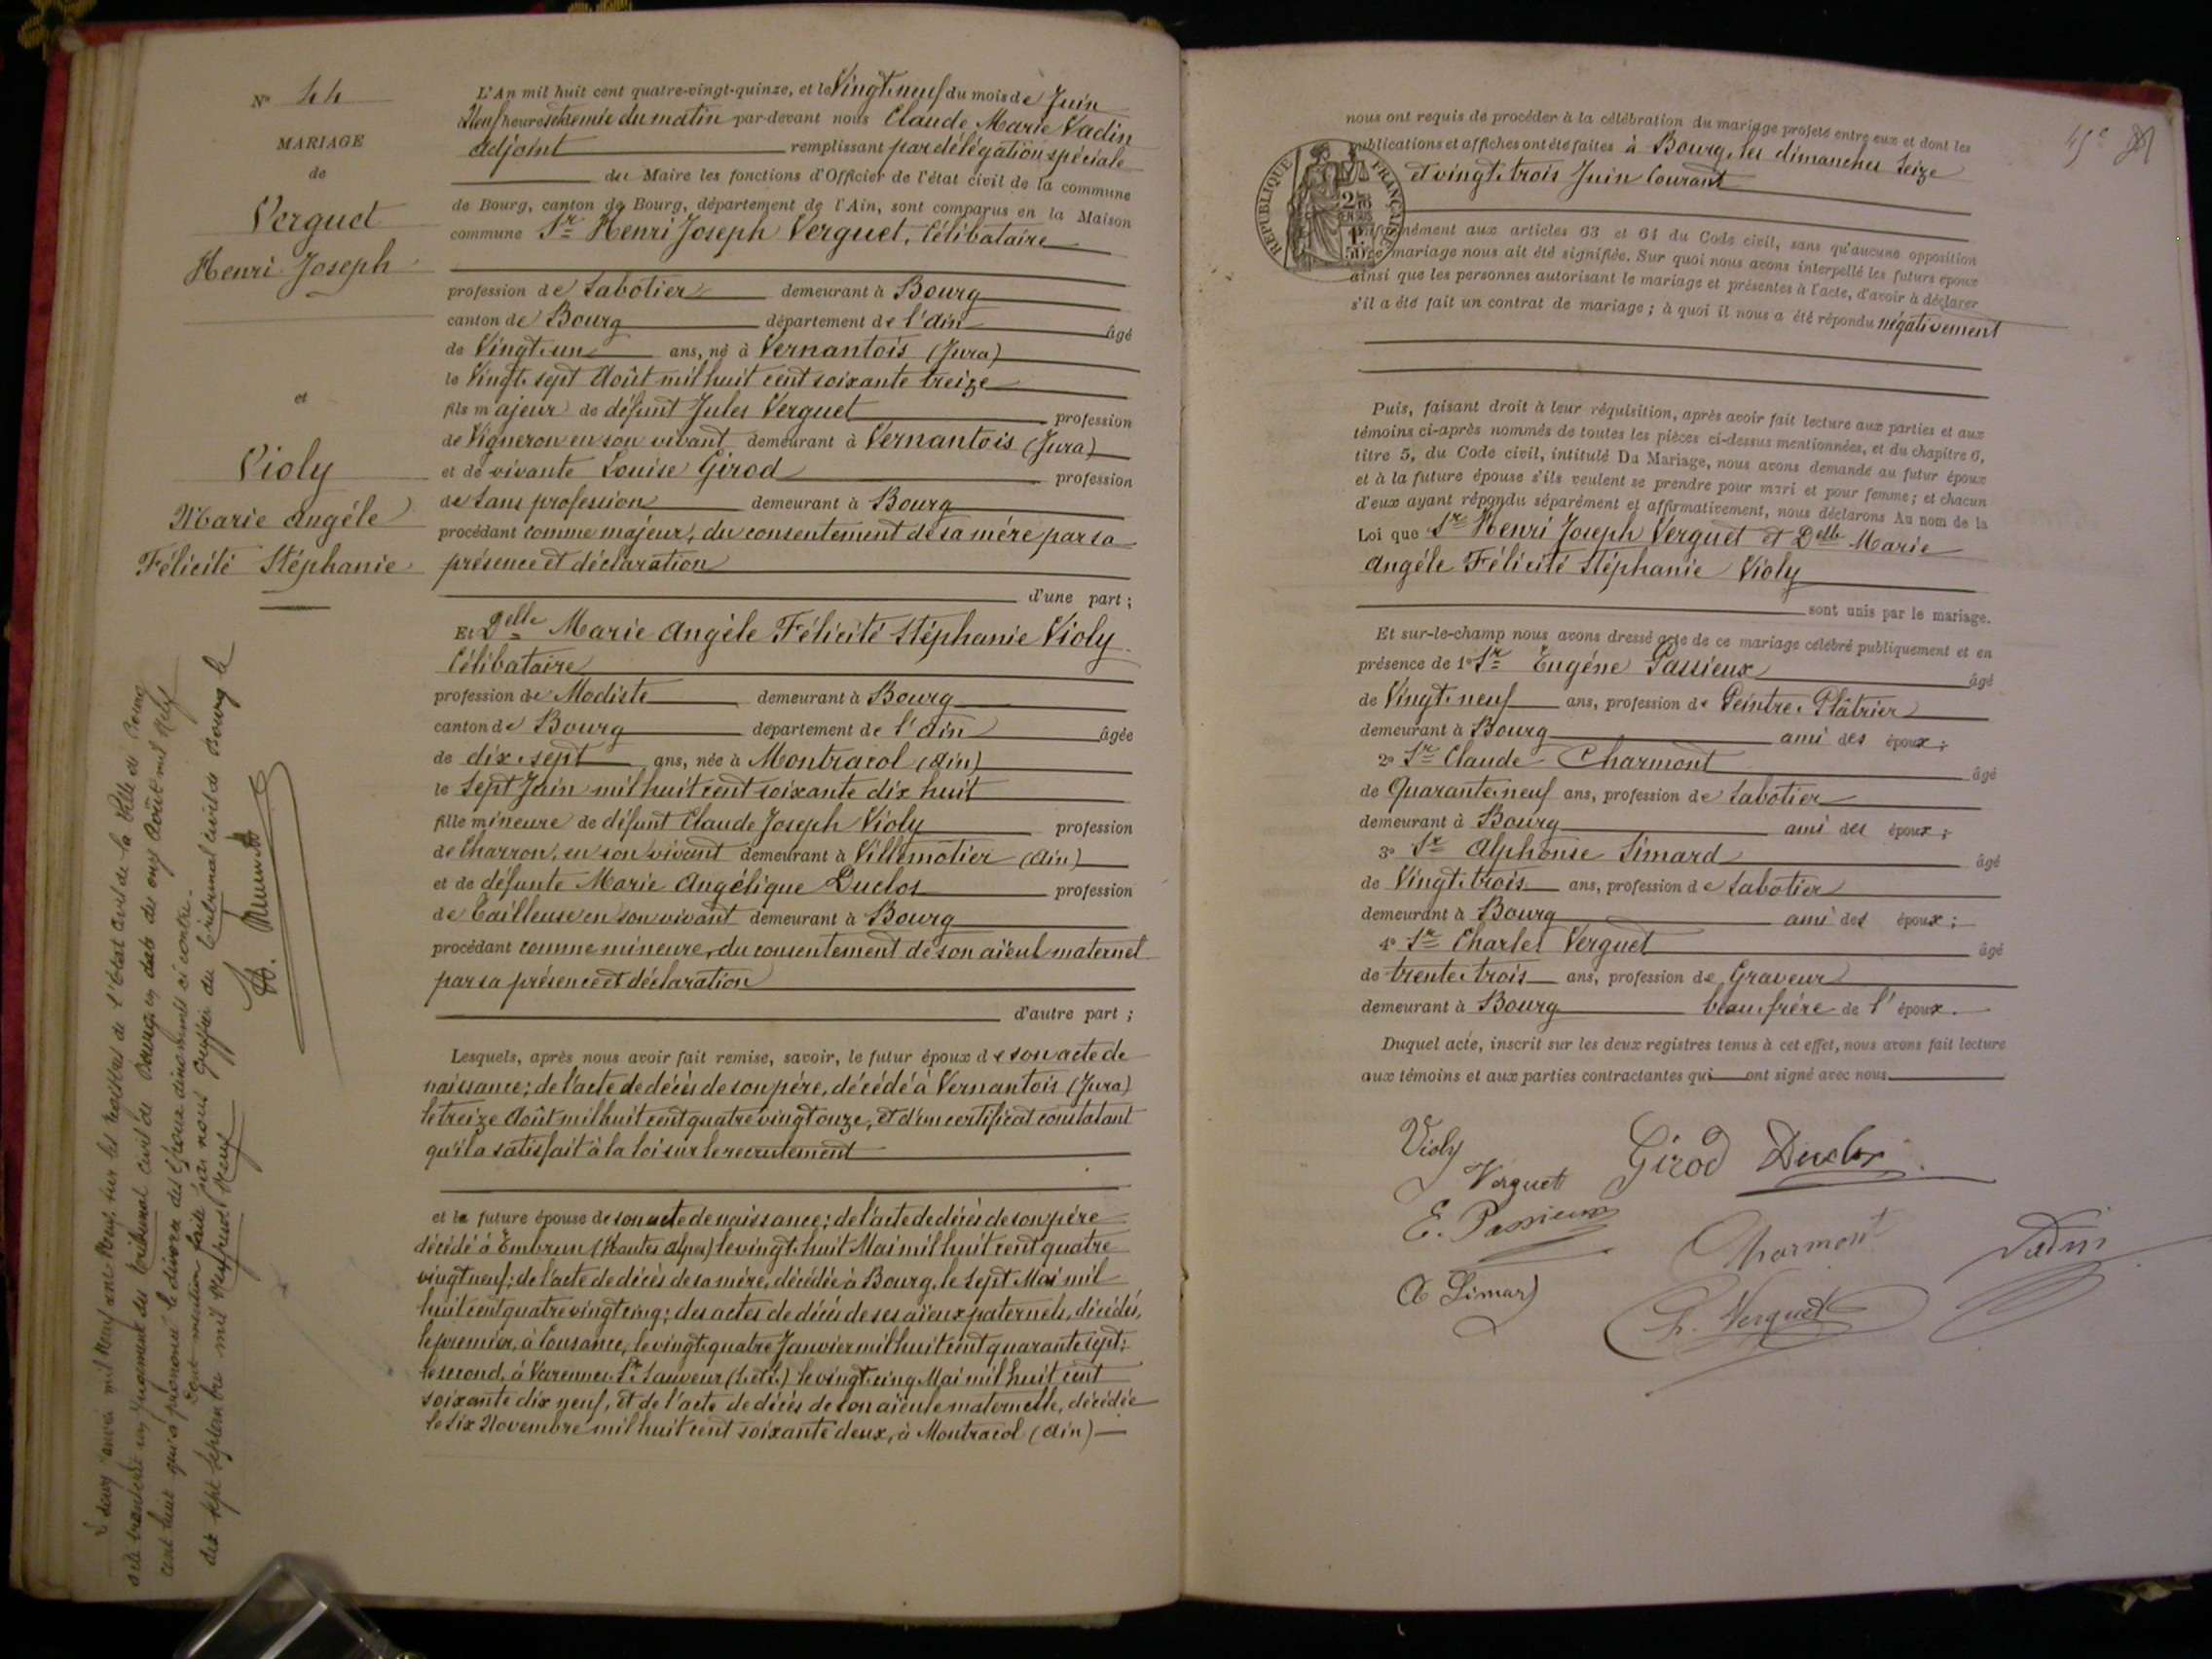 N° 44
MARIAGE
de
Verguet
Henri Joseph
et
Violy
Marie Angéle
Félicité Stéphanie
L'An mil huit cent quatre-vingt-quinze, et le Vingt-neuf du mois de Juin
à Neuf heures et demie du matin par-devant nous Claude Marie Vadin
adjoint remplissant par délégation spéciale
du Maire les fonctions d'Officier de l'état civil de la commune
de Bourg, canton de Bourg, département de l'Ain, sont comparus en la Maison
commune Sr Henri Joseph Verguet, Célibataire
profession de Sabotier demeurant à Bourg
canton de Bourg département de l'Ain âgé
de Vingt-un ans, né à Vernantois (Jura)
le Vingt-sept Août mil huit cent soixante treize
fils majeur de défunt Jules Verguet profession
de Vigneron en son vivant demeurant à Vernantois (Jura)
et de vivante Louise Girod profession
de Sans profession demeurant à Bourg
procédant comme majeur, du consentement de sa mére par sa
présence et déclaration
d'une part ;
Et Delle Marie Angéle Félicité Stéphanie Violy
Célibataire
profession de Modiste demeurant à Bourg
canton de Bourg département de l'Ain âgée
de dix-sept ans, née à Montracol (Ain)
le Sept Juin mil huit cent soixante dix huit
fille mineure de défunt Claude Joseph Violy profession
de Charron, en son vivant demeurant à Villemotier (Ain)
et de défunte Marie Angélique Duclos profession
de Tailleuse en son vivant demeurant à Bourg
procédant comme mineure, du consentement de son aïeul maternel
par sa présence et déclaration
d'autre part ;
Lesquels, après nous avoir fait remise, savoir, le futur époux de son acte de
naissance ; de l'acte de décès de son pére, décédé à Vernantois (Jura)
le treize Août mil huit cent quatre vingt onze, et d'un certificat constatant
qu'il a satisfait à la loi sur le recrutement
et la future épouse de son acte de naissance ; de l'acte de décès de son pére
décédé à Embrun (Hautes Alpes) le vingt-huit Mai mil huit cent quatre
vingt neuf ; de l'acte de décès de sa mére, décédée à Bourg, le Sept Mai mil
huit cent quatre vingt cinq ; des actes de décès de ses aïeux paternels, décédés,
le premier, à Cousance, le vingt-quatre Janvier mil huit cent quarante sept ;
le second, à Varennes St Sauveur (S. et L.) le vingt-cinq Mai mil huit cent
soixante dix neuf, et de l'acte de décès de son aïeule maternelle, décédée
le six Novembre mil huit cent soixante deux, à Montracol (Ain)
mil neuf cent neuf, sur les registres de l'état civil de la Ville de Bourg
a été transcrit un jugement du Tribunal civil de Bourg en date du onze Août mil neuf
cent huit qui a prononcé le divorce des époux dénommés ci-contre.
Dont mention faite par nous greffier du tribunal civil de Bourg le
dix sept septembre mil neuf cent neuf
nous ont requis de procéder à la célébration du mariage projeté entre eux et dont les
publications et affiches ont été faites à Bourg, les dimanches Seize
et vingt-trois Juin Courant
RÉPUBLIQUE FRANÇAISE
conformément aux articles 63 et 64 du Code civil, sans qu'aucune opposition
mariage nous ait été signifiée. Sur quoi nous avons interpellé les futurs époux
ainsi que les personnes autorisant le mariage et présentes à l'acte, d'avoir à déclarer
s'il a été fait un contrat de mariage ; à quoi il nous a été répondu négativement
Puis, faisant droit à leur réquisition, après avoir fait lecture aux parties et aux
témoins ci-après nommés de toutes les pièces ci-dessus mentionnées, et du chapitre 6,
titre 5, du Code civil, intitulé Du Mariage, nous avons demandé au futur époux
et à la future épouse s'ils veulent se prendre pour mari et pour femme ; et chacun
d'eux ayant répondu séparément et affirmativement, nous déclarons Au nom de la
Loi que Sr Henri Joseph Verguet et Delle Marie
Angéle Félicité Stéphanie Violy
sont unis par le mariage.
Et sur-le-champ nous avons dressé acte de ce mariage célébré publiquement et en
présence de 1° Sr Eugéne Passieux âgé
de Vingt-neuf ans, profession de Peintre-Plâtrier
demeurant à Bourg ami des époux ;
2° Sr Claude Charmont âgé
de Quarante-neuf ans, profession de Sabotier
demeurant à Bourg ami des époux ;
3° Sr Alphonse Simard âgé
de Vingt-trois ans, profession de Sabotier
demeurant à Bourg ami des époux ;
4° Sr Charles Verguet âgé
de trente-trois ans, profession de Graveur
demeurant à Bourg beau-frére de l'époux.
Duquel acte, inscrit sur les deux registres tenus à cet effet, nous avons fait lecture
aux témoins et aux parties contractantes qui ont signé avec nous.
Violy
Verguet
Girod Duclos
E. Passieux
Charmont
Vadin
A Simard
Ch. Verguet